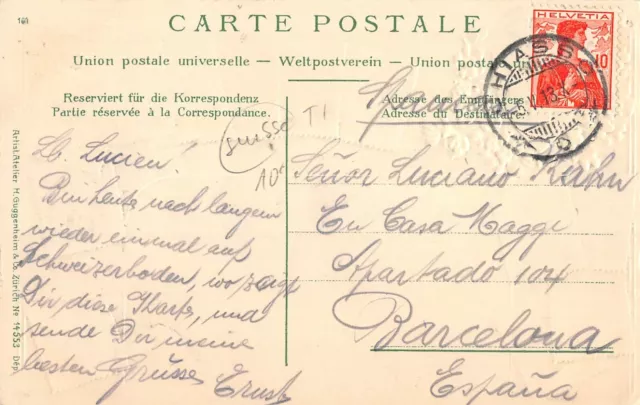 160
CARTE POSTALE
Union postale universelle. — Weltpostverein. — Union postale
HELVETIA
10
CHIASSO
Reserviert für die Korrespondenz
Partie réservée à la Correspondance.
Adresse des Empfängers
Adresse du Destinataire
Spanien
Suisse
T1
10c
L. Lucien!
Bin heute nach langem
wieder einmal auf
Schweizerboden, wo
Dir diese Karte, und
sende Dir meine
besten Grüsse
Ernst
Señor Luciano Kahn
En Casa Maggi
Apartado 104
Barcelona
España
Artist. Atelier H. Guggenheim & Co. Zürich No 14553 Dép.